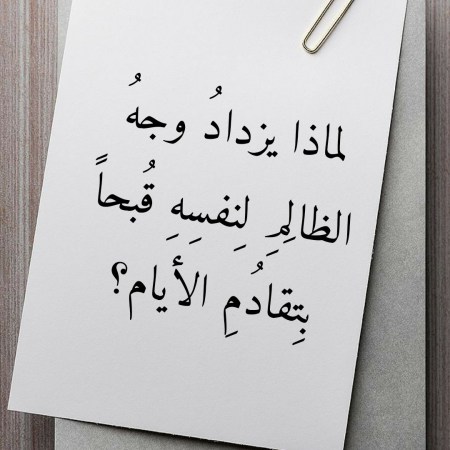 لماذا يزدادُ وجهُ
الظالِمِ لِنفسِهِ قُبحاً
بِتقادُمِ الأيام؟